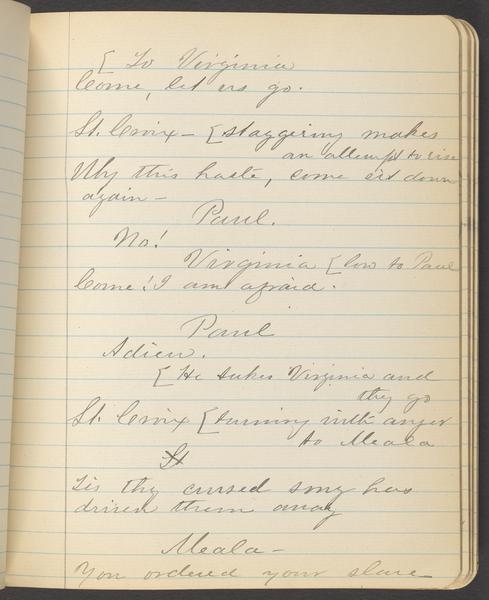 [ To Virginia
Come, let us go.
St. Croix – [staggering makes
an attempt to rise
Why this haste, come sit down
again –
Paul.
No!
Virginia [low to Paul
Come! I am afraid.
Paul
Adieu.
[He takes Virginia and
they go
St. Croix [turning with anger
to Meala
St
Tis thy cursed song has
driven them away
Meala –
You ordered your slave